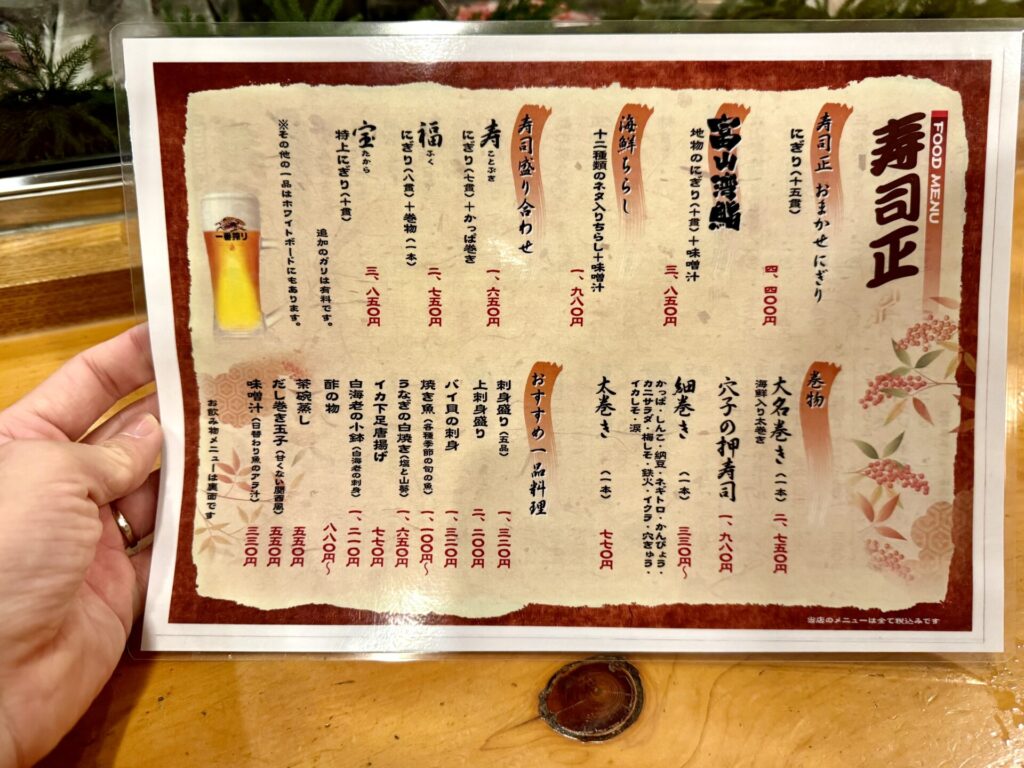 FOOD MENU
寿司正
寿司正 おまかせにぎり
にぎり(十五貫)
四、四〇〇円
富山湾鮨
地物のにぎり(十貫)+味噌汁
三、八五〇円
海鮮ちらし
十二種類のネタ入りちらし+味噌汁
一、九八〇円
寿司盛り合わせ
寿 ことぶき
にぎり(七貫)+かっぱ巻き
一、六五〇円
福 ふく
にぎり(八貫)+巻物(一本)
二、七五〇円
宝 たから
特上にぎり(十貫)
三、八五〇円
追加のガリは有料です。
※その他の一品はホワイトボードにもあります。
一番搾り
巻物
大名巻き(一本) 二、七五〇円
海鮮入り太巻き
穴子の押寿司 一、九八〇円
細巻き (一本) 三三〇円〜
かっぱ・しんこ・納豆・ネギトロ・かんぴょう・
カニサラダ・梅しそ・鉄火・イクラ・穴きゅう・
イカしそ・涙
太巻き (一本) 七七〇円
おすすめ一品料理
刺身盛り(五品) 一、三二〇円
上刺身盛り 二、二〇〇円
バイ貝の刺身 一、三二〇円
焼き魚(各種季節の旬の魚) 一、一〇〇円〜
うなぎの白焼き(塩と山葵) 一、六五〇円
イカ下足唐揚げ 七七〇円
白海老の小鉢(白海老の刺身) 一、二一〇円
酢の物 八八〇円〜
茶碗蒸し 五五〇円
だし巻き玉子(甘くない関西風) 五五〇円
味噌汁(日替わり魚のアラ汁) 三三〇円
お飲み物メニューは裏面です
当店のメニューは全て税込みです